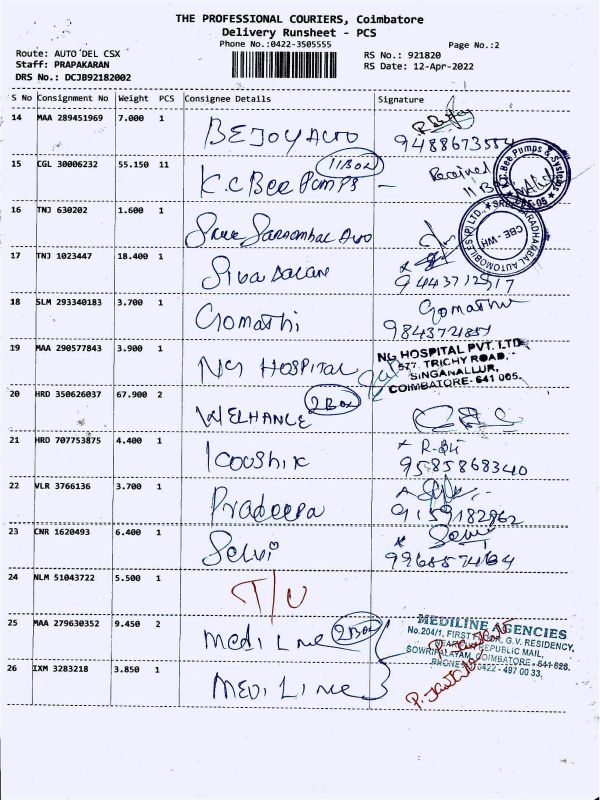 THE PROFESSIONAL COURIERS, Coimbatore
Delivery Runsheet - PCS
Phone No.:0422-3505555
Page No.:2
Route: AUTO DEL CSX
Staff: PRAPAKARAN
DRS No.: DCJB92182002
RS No.: 921820
RS Date: 12-Apr-2022
S No Consignment No Weight PCS Consignee Details Signature
14 MAA 289451969 7.000 1 BEJOY Auto
15 CGL 30006232 55.150 11 K.C Bee Pumps 11 Box Received 11 B
K.C.Bee Pumps & Systems
16 TNJ 630202 1.600 1 Sree Auto
AUTOMOBILES (P) LTD., CBE - WH
17 TNJ 1023447 18.400 1
18 SLM 293340183 3.700 1 Gomathi Gomathi
19 MAA 290577843 3.900 1 NG HOSPITAL
NG HOSPITAL PVT. LTD
577, TRICHY ROAD,
SINGANALLUR,
COIMBATORE- 641 005.
20 HRD 350626037 67.900 2 WELHANCE 2 Box
21 HRD 707753875 4.400 1 Kooushik
9585868340
22 VLR 3766136 3.700 1 Pradeepa
9159182962
23 CNR 1620493 6.400 1 Selvi Selvi
24 NLM 51043722 5.500 1 T/U
25 MAA 279630352 9.450 2 Medi Line 2 Box
MEDILINE AGENCIES
No.204/1, FIRST FLOOR, G.V. RESIDENCY,
REPUBLIC MAIL,
SOWRIPALAYAM, COIMBATORE - 641 028.
PHONE : 0422 - 497 00 33.
26 IXM 3283218 3.850 1 MEDI Line